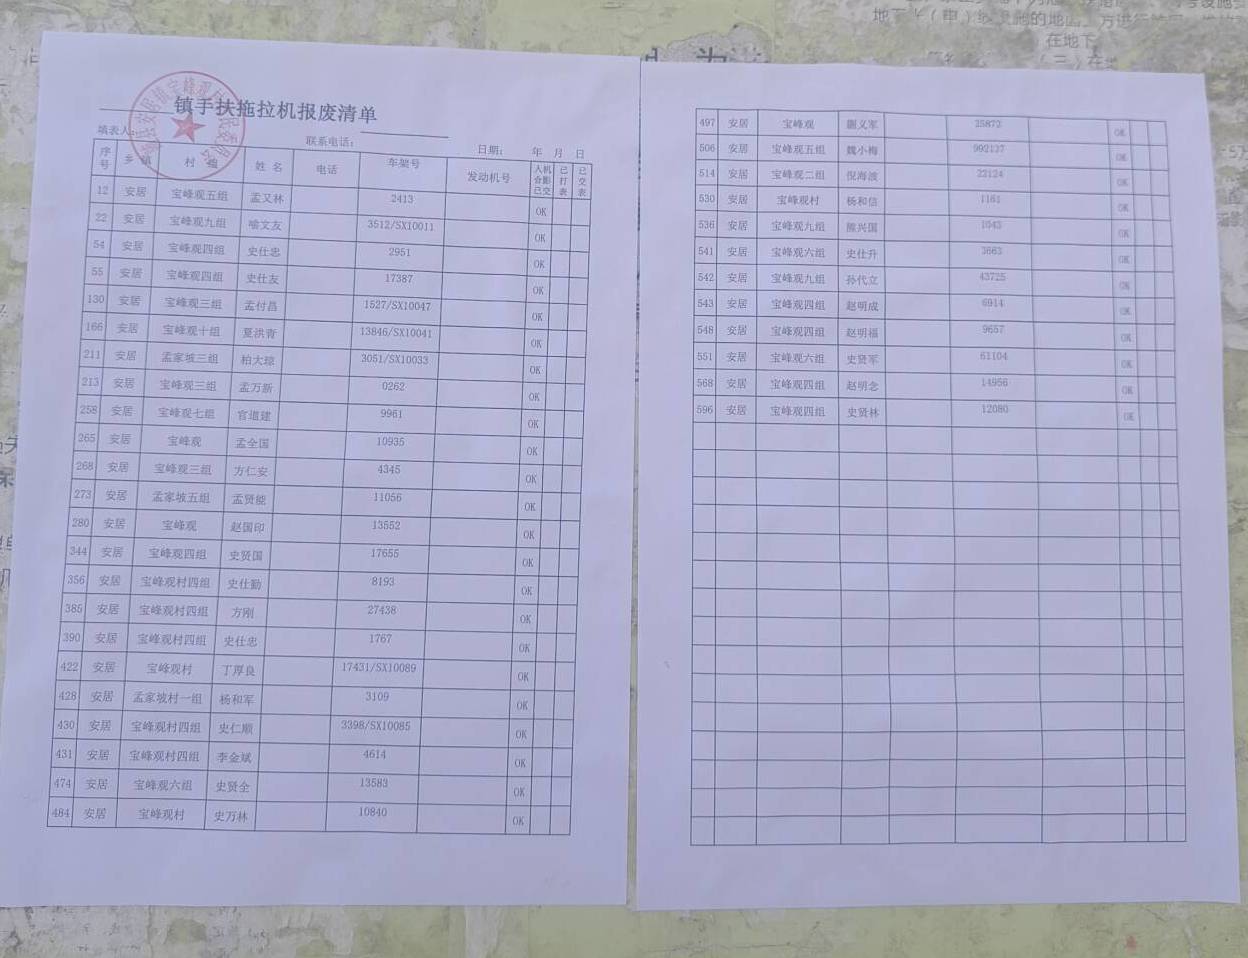 镇手扶拖拉机报废清单
填表人： 联系电话： 日期： 年 月 日
序号 乡 镇 村 组 姓 名 电话 车架号 发动机号 人机合影已交 已打表 已交表
12 安居 宝峰观五组 孟又林 2413 OK
22 安居 宝峰观九组 喻文友 3512/SX10011 OK
54 安居 宝峰观四组 史仕忠 2951 OK
55 安居 宝峰观四组 史仕友 17387 OK
130 安居 宝峰观三组 孟付昌 1527/SX10047 OK
166 安居 宝峰观十组 夏洪青 13846/SX10041 OK
211 安居 孟家坡三组 柏大琼 3051/SX10033 OK
213 安居 宝峰观三组 孟万新 0262 OK
258 安居 宝峰观七组 官道建 9961 OK
265 安居 宝峰观 孟全国 10935 OK
268 安居 宝峰观三组 方仁安 4345 OK
273 安居 孟家坡五组 孟贤能 11056 OK
280 安居 宝峰观 赵国印 13552 OK
344 安居 宝峰观四组 史贤国 17655 OK
356 安居 宝峰观村四组 史仕勤 8193 OK
385 安居 宝峰观村四组 方刚 27438 OK
390 安居 宝峰观村四组 史仕忠 1767 OK
422 安居 宝峰观村 丁厚良 17431/SX10089 OK
428 安居 孟家坡村一组 杨和军 3109 OK
430 安居 宝峰观村四组 史仁顺 3398/SX10085 OK
431 安居 宝峰观村四组 李金斌 4614 OK
474 安居 宝峰观六组 史贤全 13583 OK
484 安居 宝峰观村 史万林 10840 OK
497 安居 宝峰观 蒯义军 25872 OK
506 安居 宝峰观五组 魏小梅 992137 OK
514 安居 宝峰观二组 倪海波 22124 OK
530 安居 宝峰观村 杨和信 1161 OK
536 安居 宝峰观九组 熊兴国 1043 OK
541 安居 宝峰观六组 史仕升 3663 OK
542 安居 宝峰观九组 孙代立 43725 OK
543 安居 宝峰观四组 赵明成 6914 OK
548 安居 宝峰观四组 赵明福 9657 OK
551 安居 宝峰观六组 史贤军 61104 OK
568 安居 宝峰观四组 赵明念 14956 OK
596 安居 宝峰观四组 史贤林 12080 OK